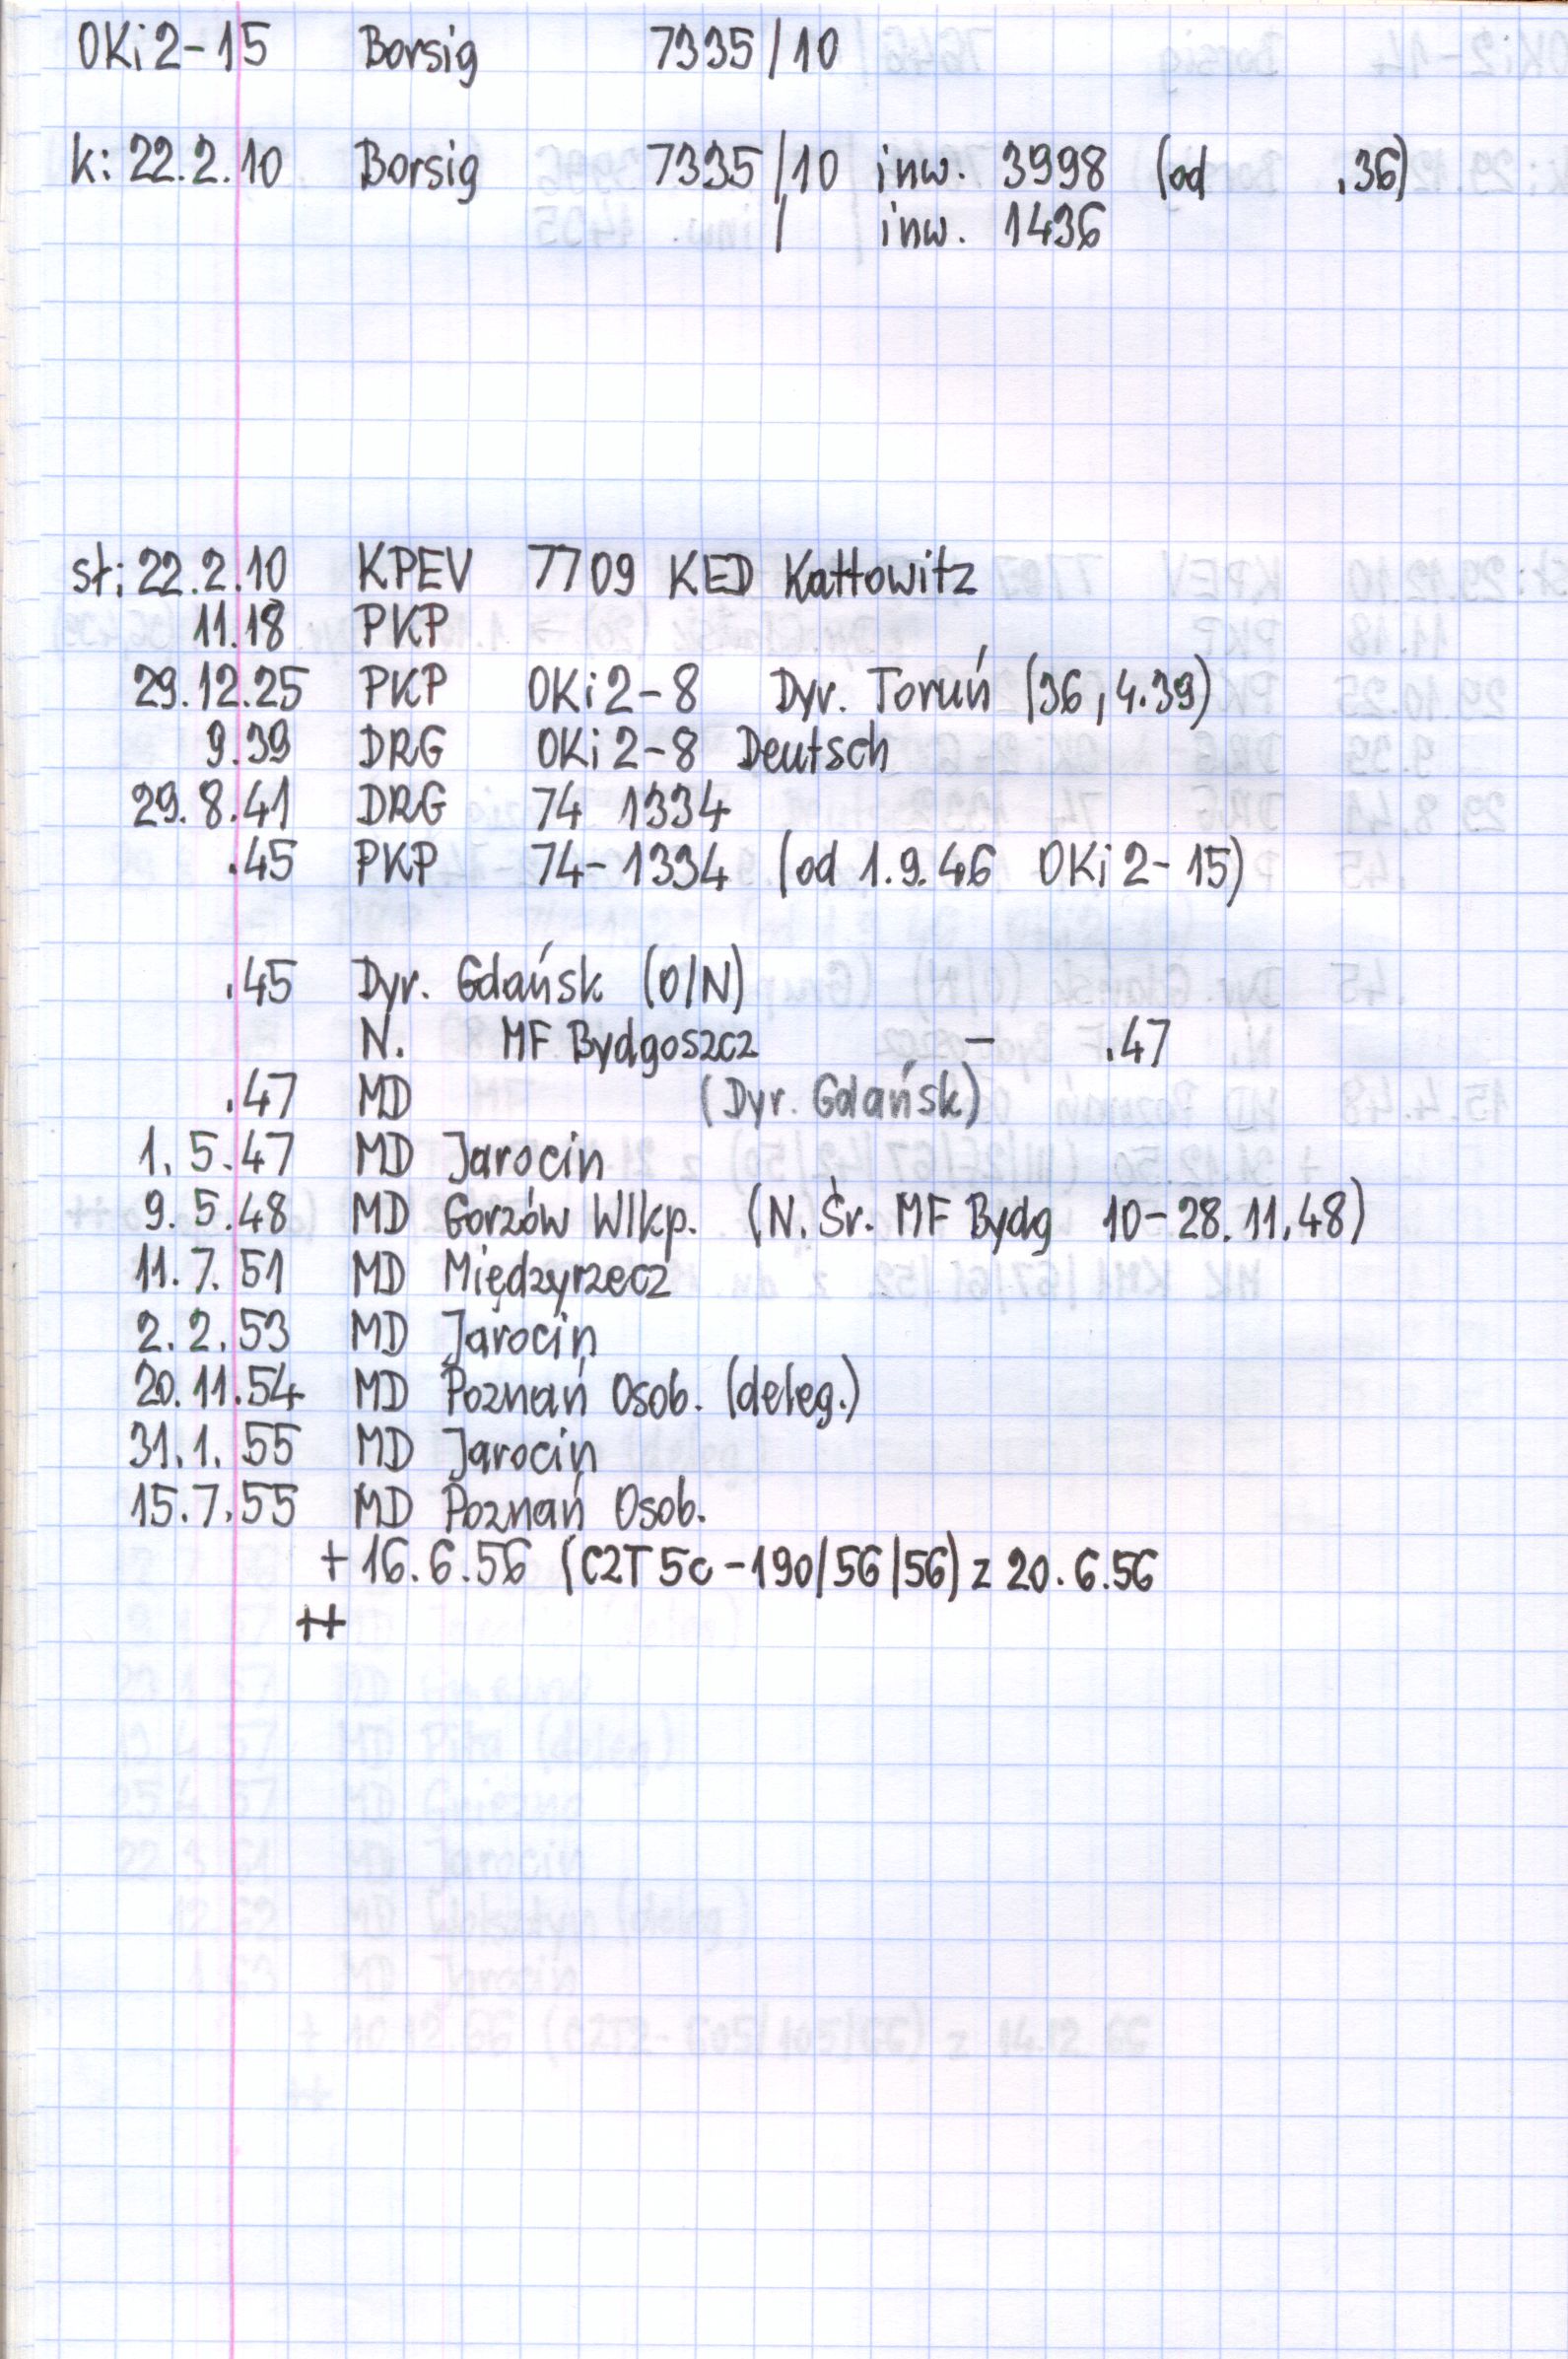 OKi2-15 Borsig 7335/10
k: 22.2.10 Borsig 7335/10 inw. 3998 (od .36)
/ inw. 1436
sł: 22.2.10 KPEV 7709 KED Kattowitz
11.18 PKP
29.12.25 PKP OKi2-8 Dyr. Toruń (36, 4.39)
9.39 DRG OKi2-8 Deutsch
29.8.41 DRG 74 1334
.45 PKP 74-1334 (od 1.9.46 OKi2-15)
.45 Dyr. Gdańsk (O/N)
N. MF Bydgoszcz - .47
.47 MD (Dyr. Gdańsk)
1.5.47 MD Jarocin
9.5.48 MD Gorzów Wlkp. (N. Śr. MF Bydg 10-28.11.48)
11.7.51 MD Międzyrzecz
2.2.53 MD Jarocin
20.11.54 MD Poznań Osob. (deleg.)
31.1.55 MD Jarocin
15.7.55 MD Poznań Osob.
+ 16.6.56 (C2T5c-190/56/56) z 20.6.56
++